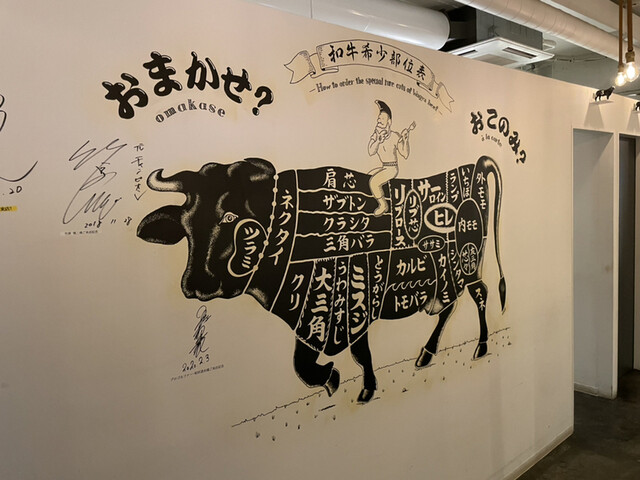 和牛希少部位表
How to order the special rare cuts of wagyu beef!
おまかせ?
omakase
おこのみ?
ツラミ
ネクタイ
肩芯
ザブトン
クラシタ
三角バラ
クリ
大三角
うわみすじ
ミスジ
とうがらし
リブロース
リブ芯
サーロイン
ヒレ
ササミ
カルビ
トモバラ
カイノミ
ランプ
いちぼ
外モモ
内モモ
2018 11
2020.2.3
20